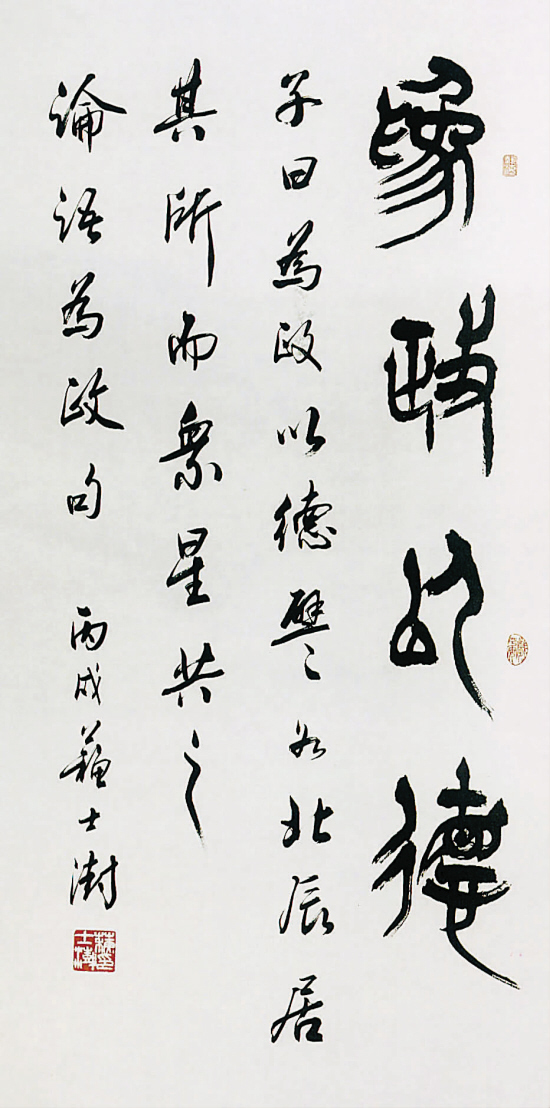 為政以德
子曰為政以德譬如北辰居
其所而眾星共之
論語為政句 丙戌蘇士澍